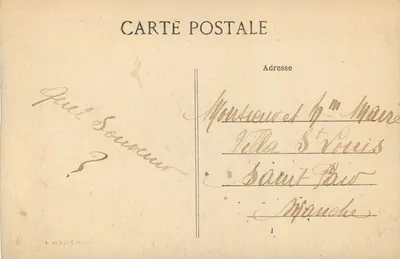 CARTE POSTALE
Adresse
Quel Souvenir
?
Monsieur et Mme Maire
Villa St Louis
Saint
Manche